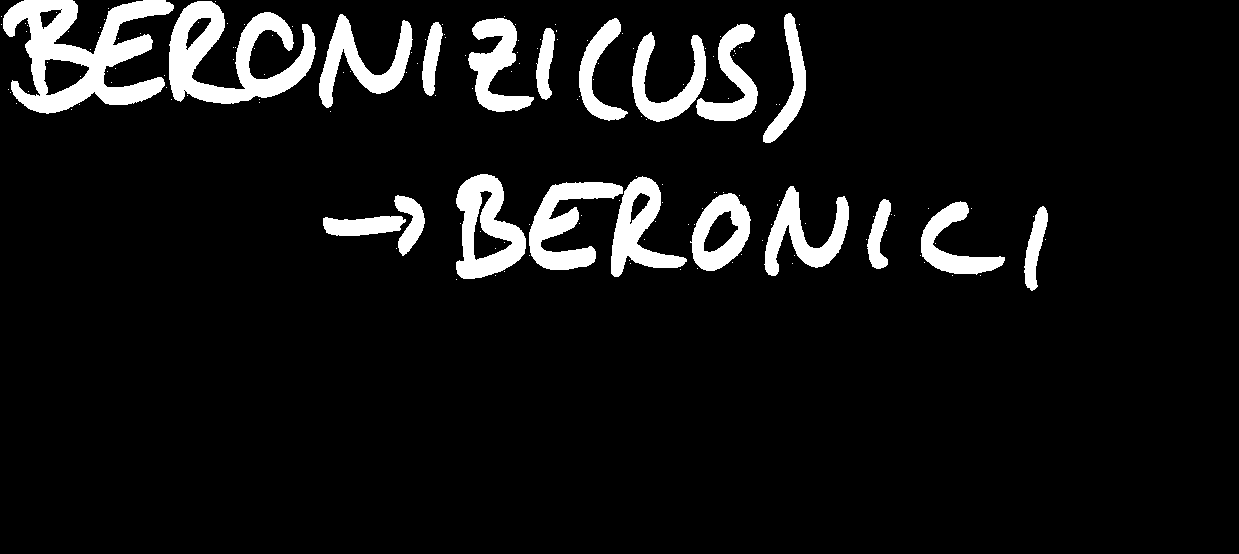 BERONIZI(US)
→ BERONICI